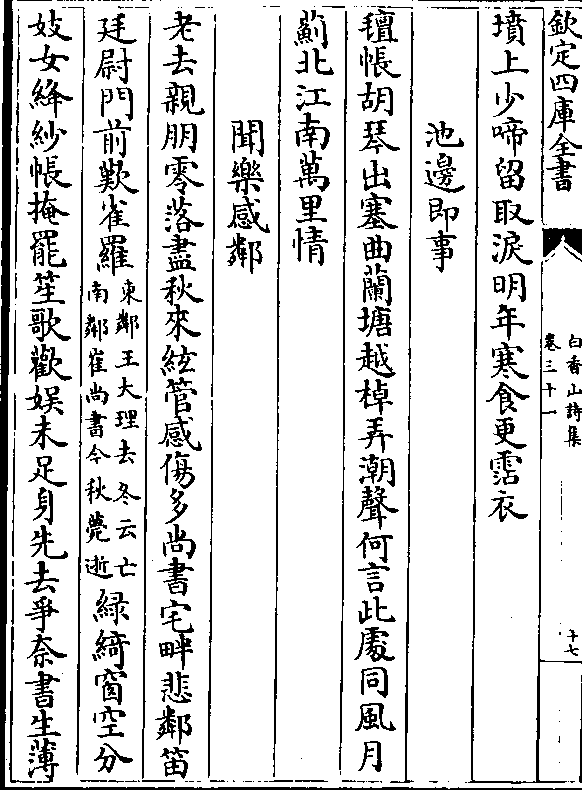 欽定四庫全書
白香山詩集
卷三十一
十七
墳上少啼留取淚明年寒食更霑衣
池邊即事
氊帳胡琴出塞曲蘭塘越棹弄潮聲何言此處同風月
薊北江南萬里情
聞樂感鄰
老去親朋零落盡秋來絃管感傷多尚書宅畔悲鄰笛
廷尉門前歎雀羅
東鄰王大理去冬云亡
南鄰崔尚書今秋薨逝
緑綺窗空分
妓女絳紗帳掩罷笙歌歡娱未足身先去爭奈書生薄